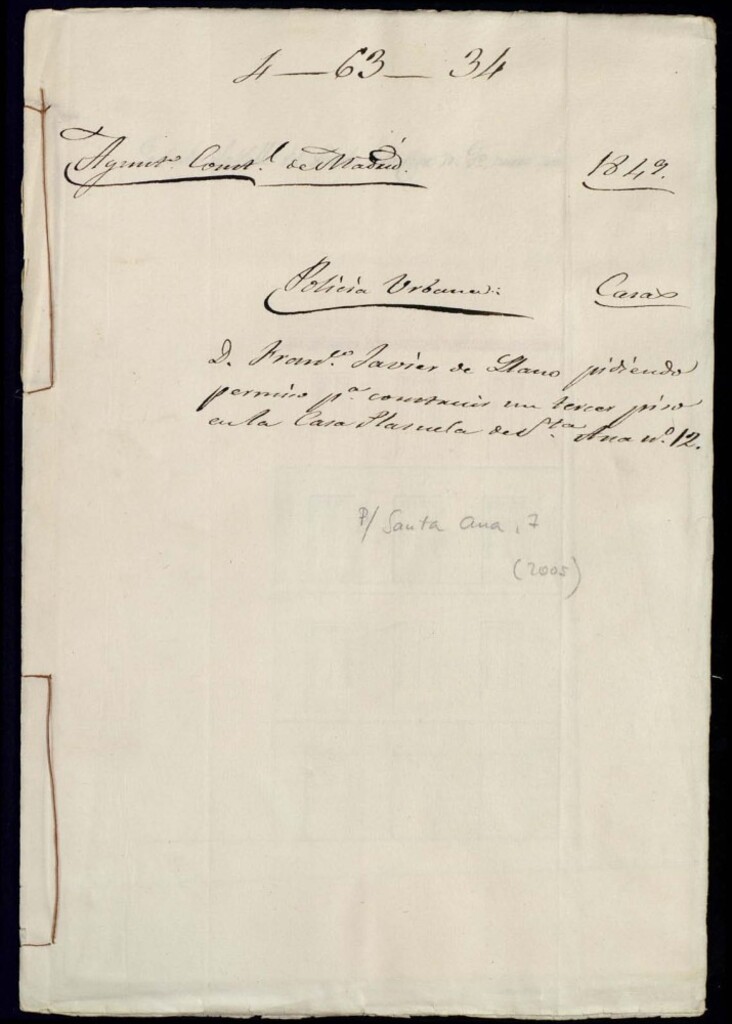 4 — 63 — 34
Ayunto. Const.l de Madrid.
1849.
Policía Urbana:
Casas
D. Franco. Javier de Llano pidiendo
permiso pa. construir un tercer piso
en la Casa Plazuela de Sta. Ana no. 12.
P/ Santa Ana, 7
(2005)